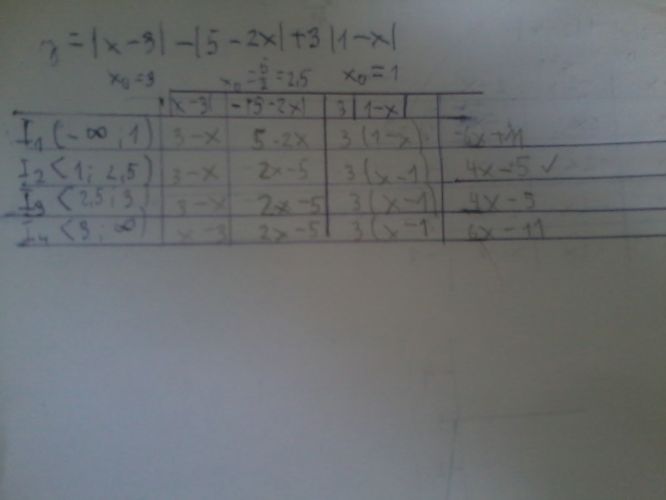 y = |x-3| - |5-2x| + 3|1-x|
x₀=3 x₀=5/2=2,5 x₀=1
|x-3| -|5-2x| 3|1-x|
I₁ (-∞; 1) 3-x 5-2x 3(1-x) -6x+11
I₂ <1; 2,5) 3-x 2x-5 3(x-1) 4x-5 ✓
I₃ <2,5; 3) 3-x 2x-5 3(x-1) 4x-5
I₄ <3; ∞) x-3 2x-5 3(x-1 6x-11